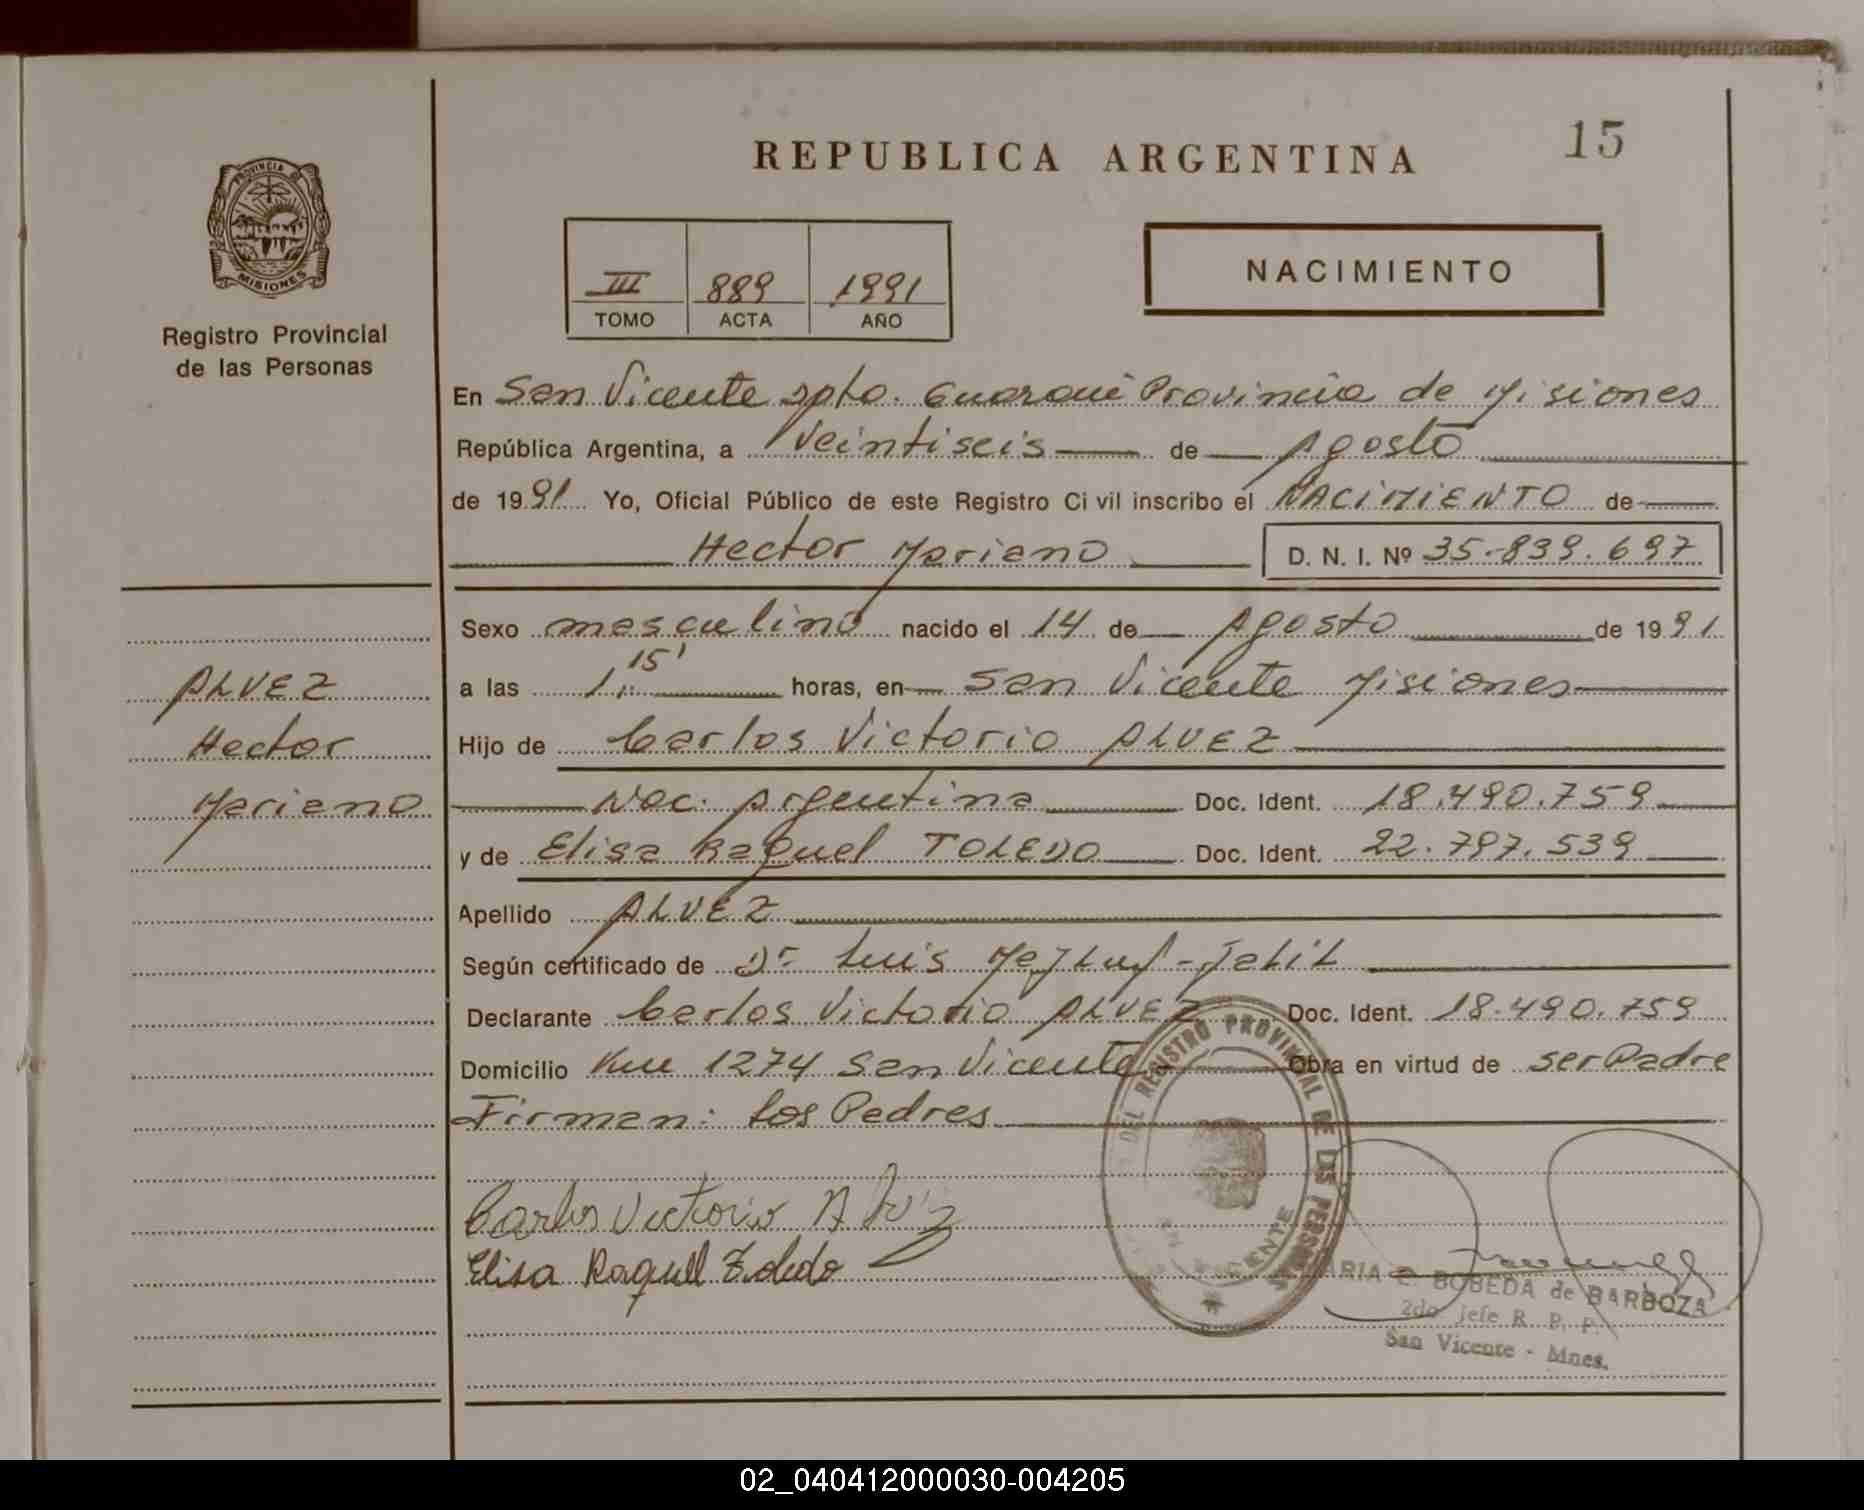 15
REPUBLICA ARGENTINA
PROVINCIA DE
MISIONES
Registro Provincial
de las Personas
III 889 1991
TOMO ACTA AÑO
NACIMIENTO
En San Vicente Dpto. Guaraní Provincia de Misiones
República Argentina, a Veintiseis de Agosto
de 1991 Yo, Oficial Público de este Registro Civil inscribo el NACIMIENTO de
Hector Mariano D. N. I. Nº 35.839.697
Sexo masculino nacido el 14 de Agosto de 1991
a las 1,15' horas, en San Vicente Misiones
Hijo de Carlos Victorio ALVEZ
Nac. Argentina Doc. Ident. 18.490.759
y de Elisa Raquel TOLEDO Doc. Ident. 22.797.539
Apellido ALVEZ
Según certificado de Dr Luis
Declarante Carlos Victorio ALVEZ Doc. Ident. 18.490.759
Domicilio Km 1274 San Vicente Obra en virtud de ser Padre
Firman: Los Padres
ALVEZ
Hector
Mariano
Carlos Victorio Alvez
Elisa Raquel Toledo
DEL REGISTRO PROVINCIAL DE LAS PERSONAS
MARIA E. BOBEDA de BARBOZA
2do Jefe R. P. P.
San Vicente - Mnes.
02_040412000030-004205